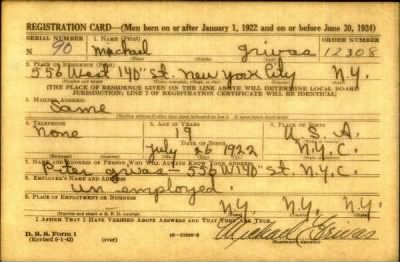 REGISTRATION CARD—(Men born on or after January 1, 1922 and on or before June 30, 1924)
SERIAL NUMBER 1. NAME (Print) ORDER NUMBER
N 90 Michael grivas 12308
(First) (Middle) (Last)
2. PLACE OF RESIDENCE (Print)
556 West 140" St. New York City N.Y.
(THE PLACE OF RESIDENCE GIVEN ON THE LINE ABOVE WILL DETERMINE LOCAL BOARD
JURISDICTION; LINE 1 OF REGISTRATION CERTIFICATE WILL BE IDENTICAL)
3. MAILING ADDRESS
Same
4. TELEPHONE 5. AGE IN YEARS 6. PLACE OF BIRTH
None 19 U.S.A.
July 26 1922 N.Y.C.
7. NAME AND ADDRESS OF PERSON WHO WILL ALWAYS KNOW YOUR ADDRESS
Peter grivas - 556 W 140" St. N.Y.C.
8. EMPLOYER'S NAME AND ADDRESS
un employed.
9. PLACE OF EMPLOYMENT OR BUSINESS
N.Y. N.Y. N.Y.
I AFFIRM THAT I HAVE VERIFIED ABOVE ANSWERS AND THAT THEY ARE TRUE.
D. S. S. Form 1
(Revised 6-1-42) Michael Grivas